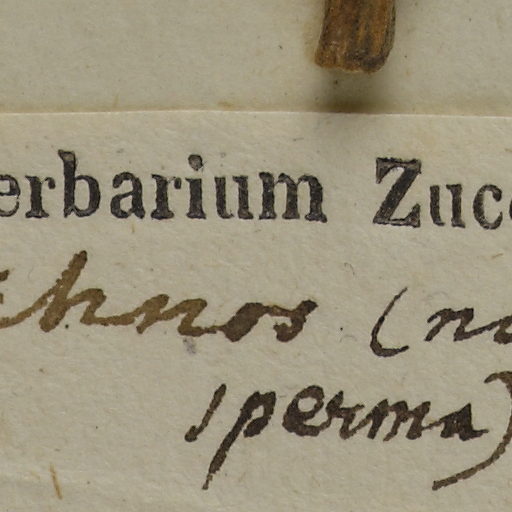 erbarium Zucc
chnos (no
sperma)